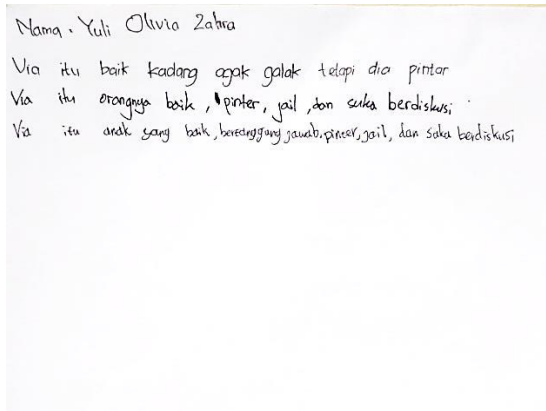 Nama . Yuli Olivia Zahra
Via itu baik kadang agak galak tetapi dia pintar
Via itu orangnya baik , pinter, jail, dan suka berdiskusi
Via itu anak yang baik, beretanggung jawab, pinter, jail, dan suka berdiskusi